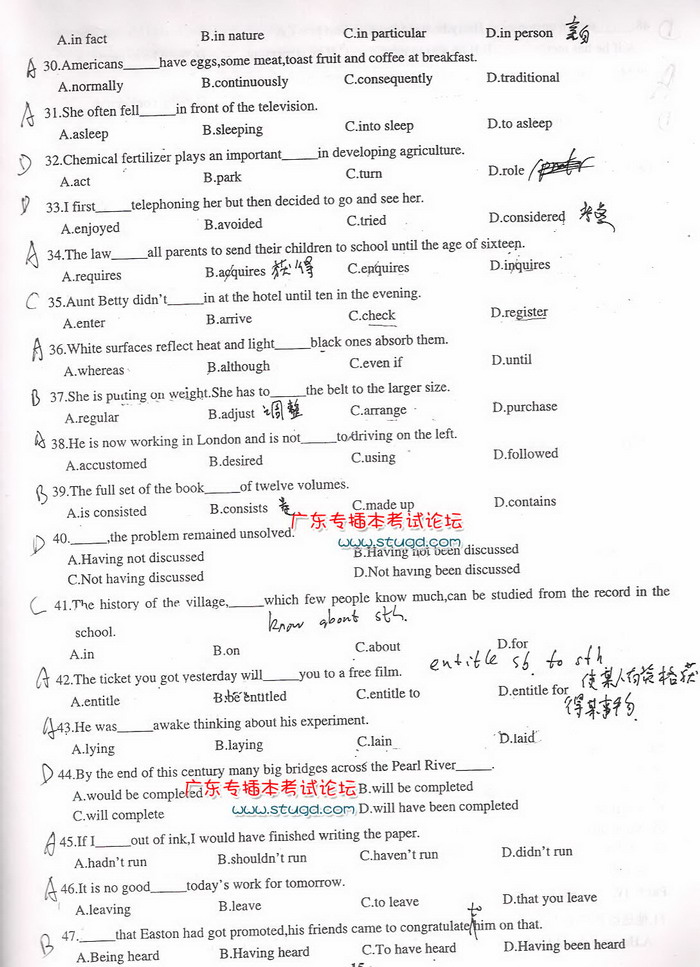 A.in fact B.in nature C.in particular D.in person 亲自
A 30.Americans_____have eggs,some meat,toast fruit and coffee at breakfast.
A.normally B.continuously C.consequently D.traditional
A 31.She often fell_____in front of the television.
A.asleep B.sleeping C.into sleep D.to asleep
D 32.Chemical fertilizer plays an important_____in developing agriculture.
A.act B.park C.turn D.role
D 33.I first_____telephoning her but then decided to go and see her.
A.enjoyed B.avoided C.tried D.considered 考虑
A 34.The law_____all parents to send their children to school until the age of sixteen.
A.requires B.acquires 获得 C.enquires D.inquires
C 35.Aunt Betty didn't_____in at the hotel until ten in the evening.
A.enter B.arrive C.check D.register
A 36.White surfaces reflect heat and light_____black ones absorb them.
A.whereas B.although C.even if D.until
B 37.She is putting on weight.She has to_____the belt to the larger size.
A.regular B.adjust 调整 C.arrange D.purchase
A 38.He is now working in London and is not_____to driving on the left.
A.accustomed B.desired C.using D.followed
B 39.The full set of the book_____of twelve volumes.
A.is consisted B.consists C.made up D.contains
广东专插本考试论坛
www.stugd.com
D 40._____,the problem remained unsolved.
A.Having not discussed B.Having not been discussed
C.Not having discussed D.Not having been discussed
C 41.The history of the village,_____which few people know much,can be studied from the record in the
know about sth.
school.
A.in B.on C.about D.for
entitle sb. to sth
A 42.The ticket you got yesterday will_____you to a free film.
使某人有资格获
A.entitle B.be entitled C.entitle to D.entitle for
得某事物
A 43.He was_____awake thinking about his experiment.
A.lying B.laying C.lain D.laid
D 44.By the end of this century many big bridges across the Pearl River_____.
A.would be completed B.will be completed
广东专插本考试论坛
www.stugd.com
C.will complete D.will have been completed
A 45.If I_____out of ink,I would have finished writing the paper.
A.hadn't run B.shouldn't run C.haven't run D.didn't run
A 46.It is no good_____today's work for tomorrow.
A.leaving B.leave C.to leave D.that you leave
to
B 47._____that Easton had got promoted,his friends came to congratulate him on that.
A.Being heard B.Having heard C.To have heard D.Having been heard
15